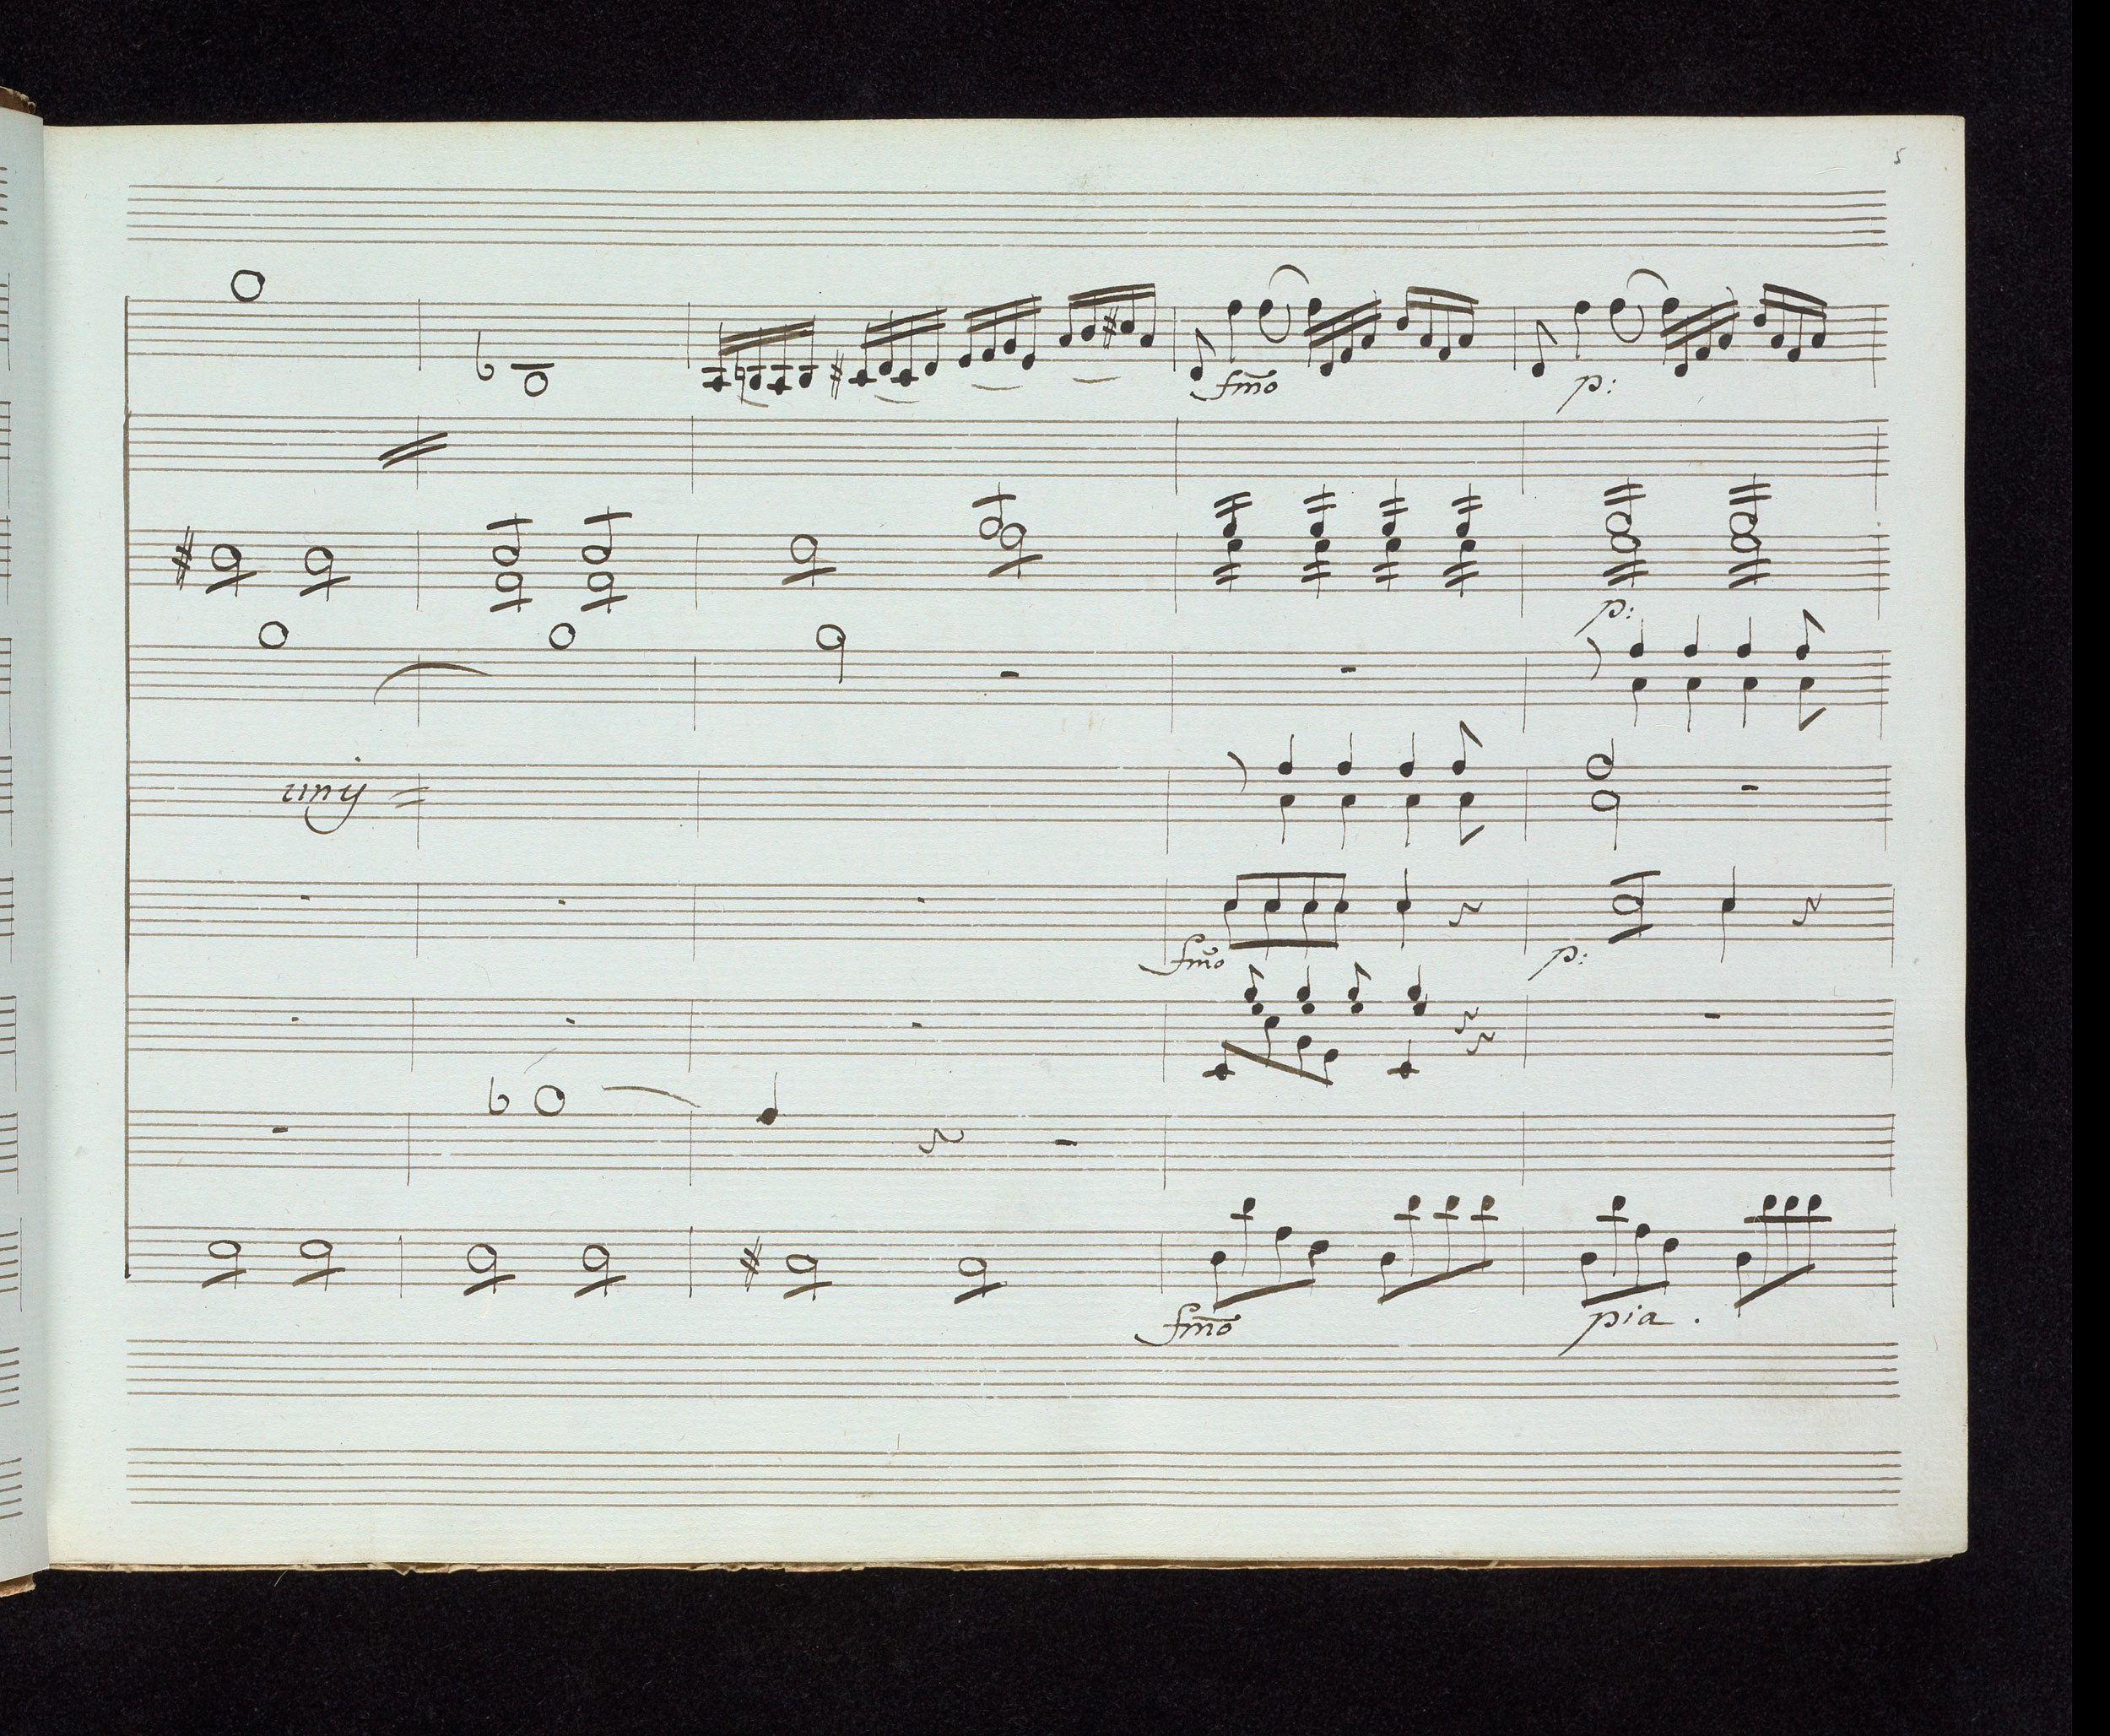 5
fmo p:
p:
unij
fmo p:
fmo pia.